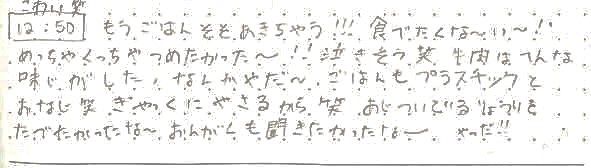 こわい笑
12:50 もうごはんそそあきちゃう!!! 食でたくな〜い〜!
めっちゃくっちゃつめたかった〜!! 泣きそう笑 牛肉はへんな
味じがした、なんかやだ〜 ごはんもプラスチックと
おなじ笑 ぎゃくにやさるから笑 あじついでるりょうりを
たでたかったな〜 おんがくも聞きたかったな〜 やっだ!!